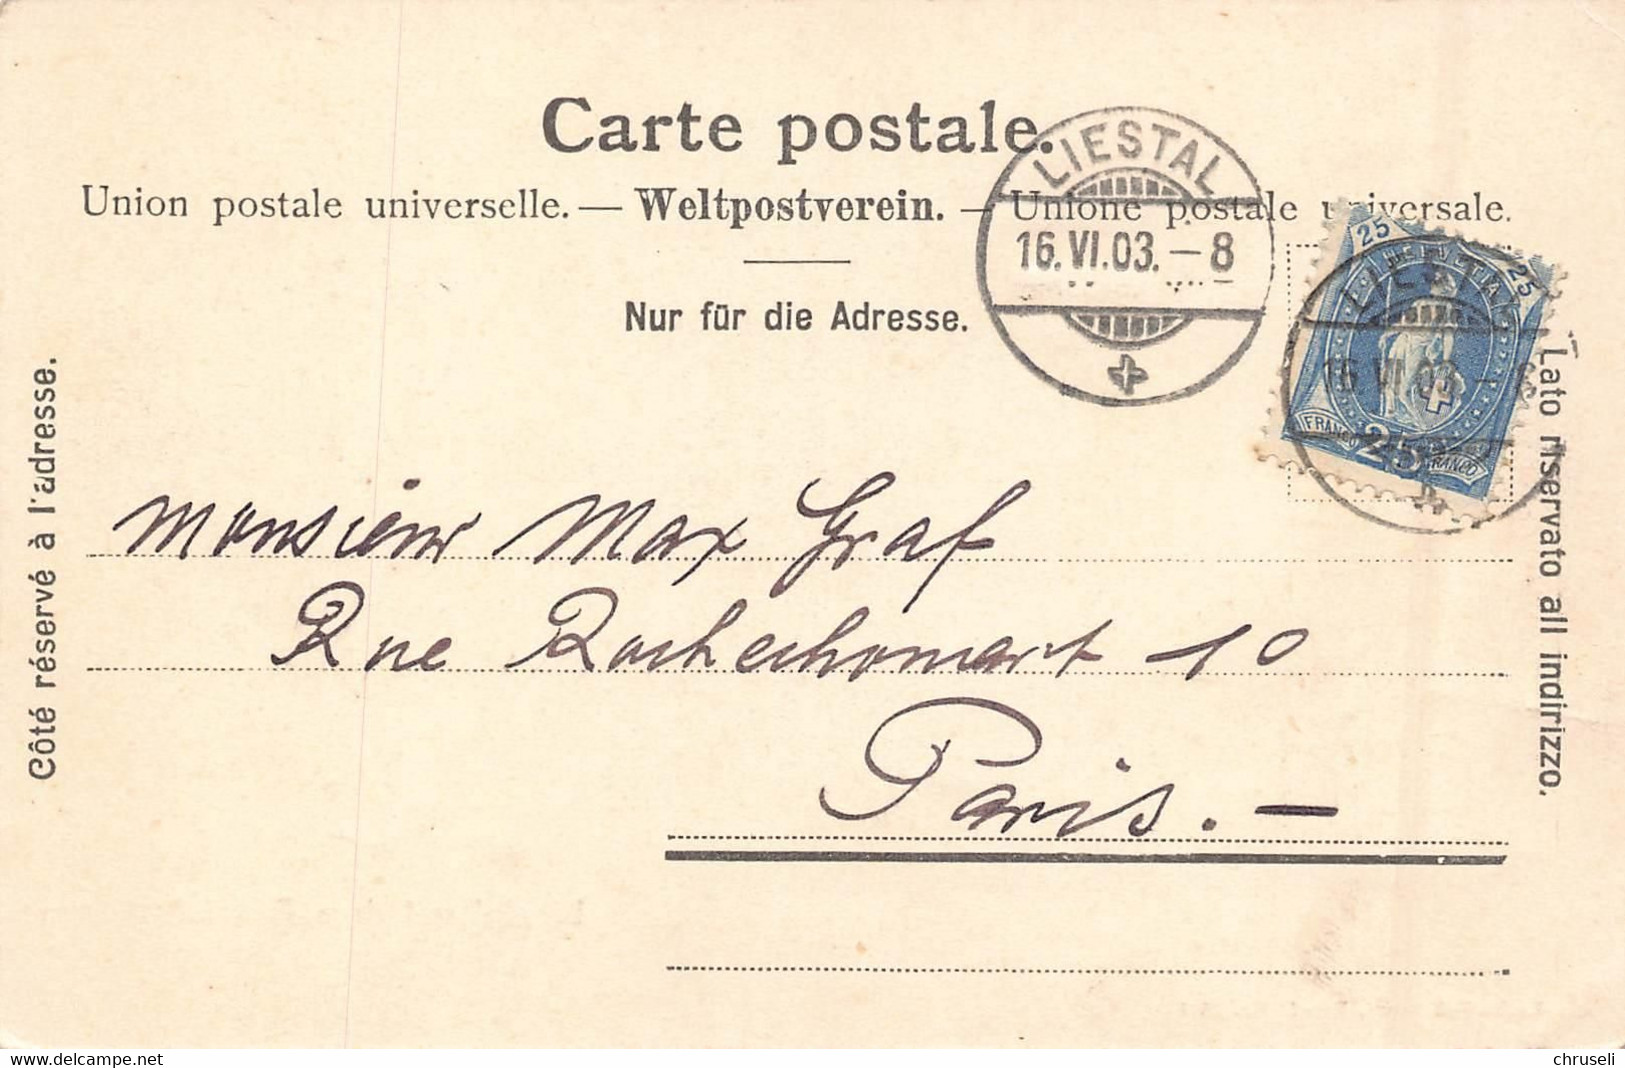 Carte postale.
Union postale universelle. — Weltpostverein. — Unione postale universale.
Nur für die Adresse.
LIESTAL
16.VI.03.–8
25 HELVETIA 25
LIESTAL
16 VI 03 –
FRANCO 25 FRANCO
Côté réservé à l'adresse.
Lato riservato all indirizzo.
Monsieur Max Graf
Rue Rochechouart 10
Paris. —
delcampe.net
chruseli